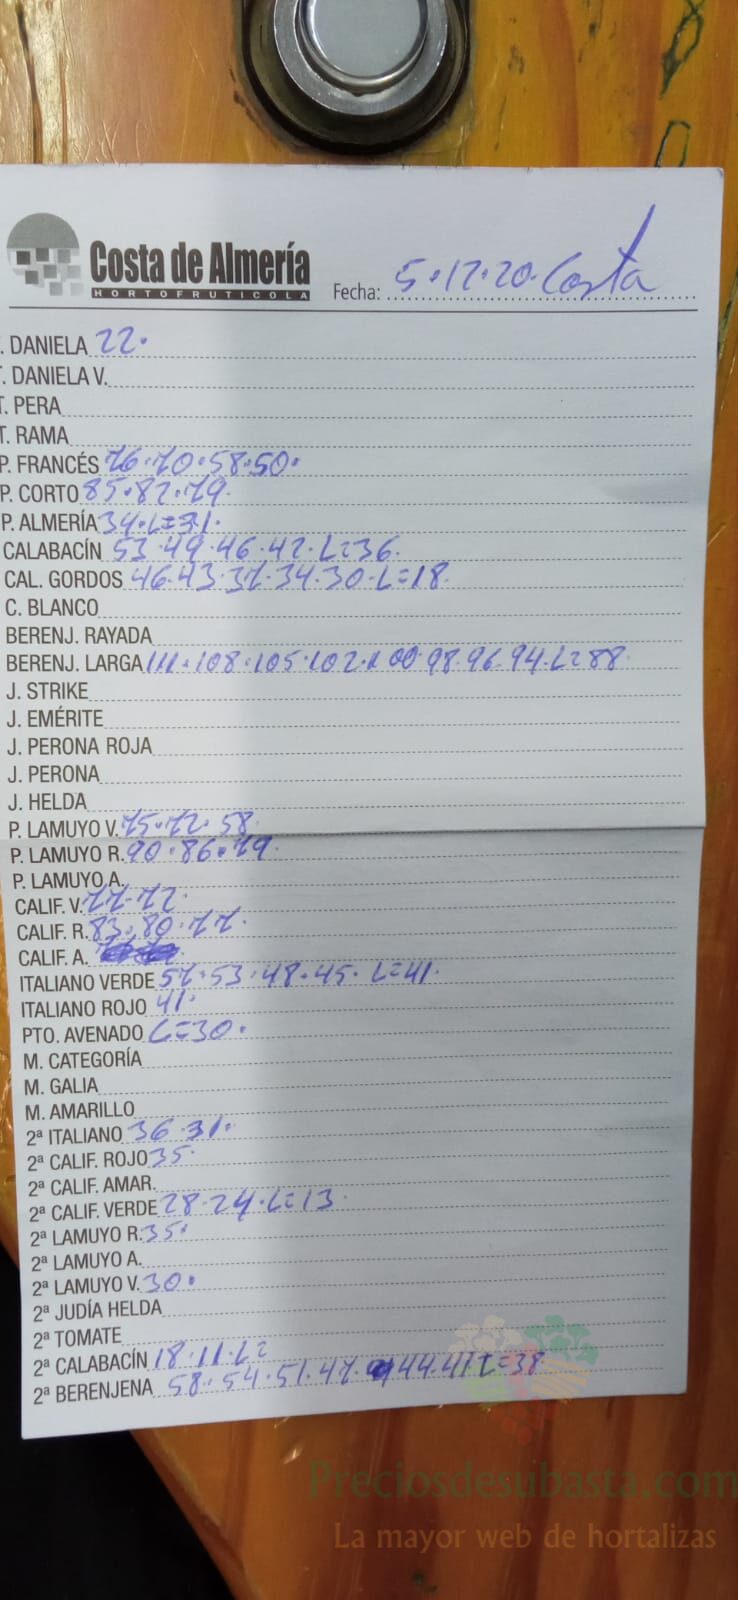 Costa de Almería
HORTOFRUTICOLA
Fecha: 5.12.20. Costa
. DANIELA 22.
T. DANIELA V.
T. PERA
T. RAMA
P. FRANCÉS 76.70.58.50.
P. CORTO 85.82.79.
P. ALMERÍA 34.L=31.
CALABACÍN 53.49.46.42.L=36.
CAL. GORDOS 46.43.37.34.30.L=18.
C. BLANCO
BERENJ. RAYADA
BERENJ. LARGA 111.108.105.102.100.98.96.94.L=88.
J. STRIKE
J. EMÉRITE
J. PERONA ROJA
J. PERONA
J. HELDA
P. LAMUYO V. 75.72.58.
P. LAMUYO R. 90.86.79.
P. LAMUYO A.
CALIF. V. 77.72.
CALIF. R. 83.80.77.
CALIF. A.
ITALIANO VERDE 57.53.48.45.L=41.
ITALIANO ROJO 41.
PTO. AVENADO L=30.
M. CATEGORÍA
M. GALIA
M. AMARILLO
2ª ITALIANO 36.31.
2ª CALIF. ROJO 35.
2ª CALIF. AMAR.
2ª CALIF. VERDE 28.24.L=13.
2ª LAMUYO R. 35.
2ª LAMUYO A.
2ª LAMUYO V. 30.
2ª JUDÍA HELDA
2ª TOMATE
2ª CALABACÍN 18.11.L=
2ª BERENJENA 58.54.51.47.44.41.L=38
Preciosdesubasta.com
La mayor web de hortalizas